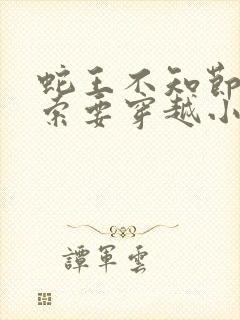 蛇王不知節
索要穿越小
譚軍雲